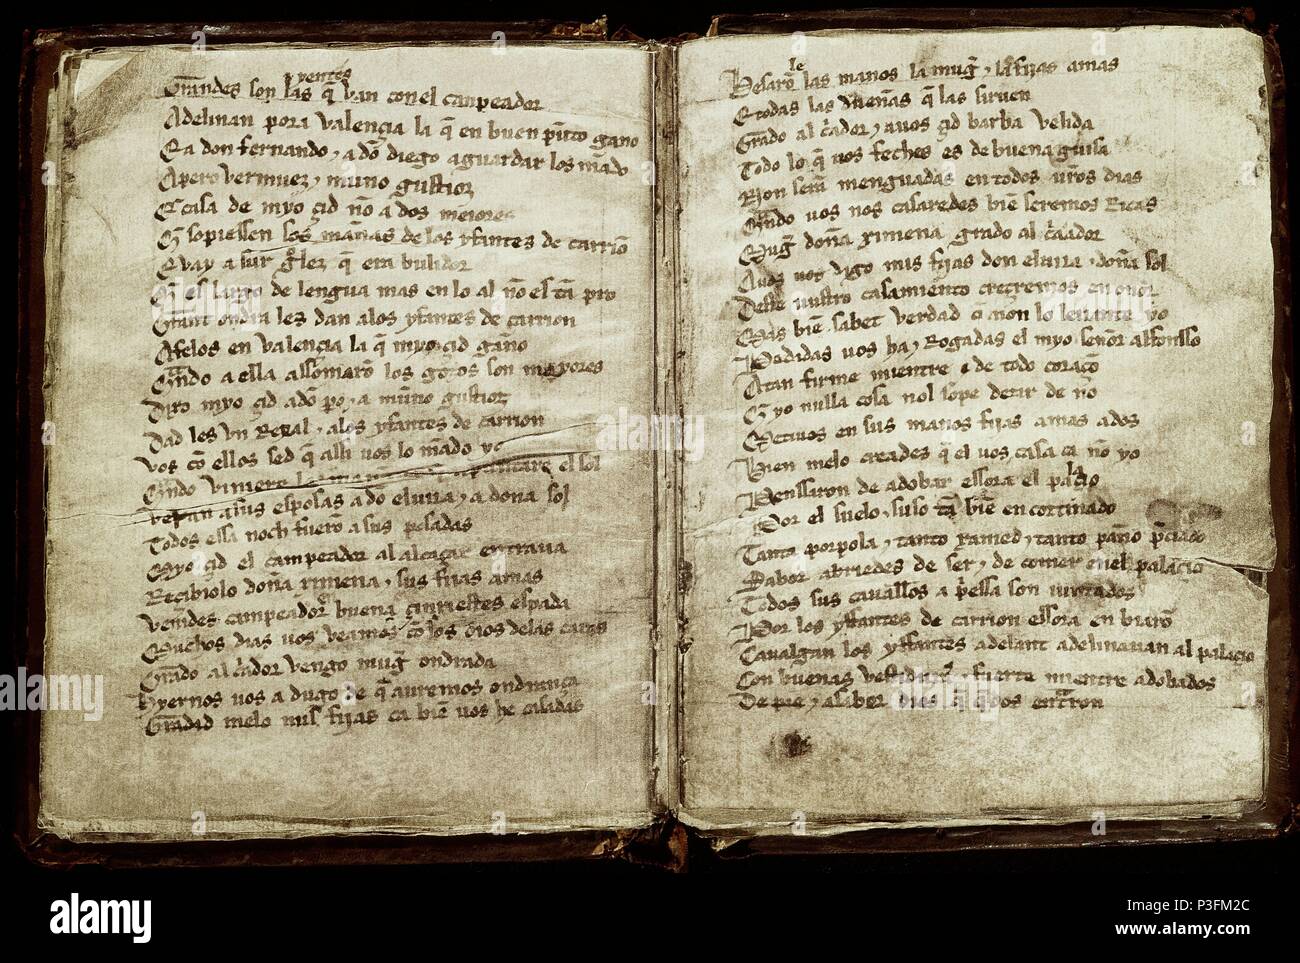 Grandes son las yentes q̃ van con el canpeador
Adelinan pora valençia la q̃ en buen pũto gano
E a don fernando ⁊ a dõ diego aguardar los mãdo
A pero vermuez ⁊ muño gustioz
E casa de myo çid nõ a dos meiores
Q̃ sopiessen sos mañas de los yfantes de carriõ
E vay asur gõçlez q̃ era bulidor
Q̃ es largo de lengua mas en lo al nõ es tã pro
Grant ondra les dan a los yfantes de carrion
Afelos en valençia la q̃ myo çid gaño
Quãdo a ella assomarõ los gozos son mayores
Dixo myo çid a dõ po ⁊ a muño gustioz
Dad les vn Reyal ⁊ a los yfantes de carrion
vos cõ ellos sed q̃ assi vos lo mãdo yo
Quãdo viniere la mañana q̃ apuntare el sol
veran a sus esposas a do eluira ⁊ a doña sol
Todos essa noch fuerõ a sus posadas
Myo çid el campeador al alcaçar entraua
Recibiolo doña ximena ⁊ sus fijas amas
venides campeador buena çinxiestes espada
Muchos dias vos veamos cõ los oios de las caras
Grado al c̃ador vengo mug̃ ondrada
Hyernos vos adugo de q̃ auremos ondrança
Gradid melo mis fijas ca biẽ vos he casadas
Besarõ le las manos la mug̃ ⁊ las fijas amas
E todas las dueñas q̃ las siruen
Grado al c̃ador ⁊ auos çid barba velida
Todo lo q̃ vos feches es de buena guisa
Non serã menguadas en todos vr̃os dias
Quãdo vos nos casaredes biẽ seremos Ricas
Mug̃ doña ximena grado al c̃ador
Auos vos digo mis fijas don eluira ⁊ doña sol
Deste vustro casamiento creçremos en onor
Mas biẽ sabet verdad q̃ non lo leuante yo
Pedidas vos ha ⁊ Rogadas el myo señor alfonsso
Atan firme mientre ⁊ de todo coraçõ
Q̃ yo nulla cosa nol sope dezir de nõ
Metiuos en sus manos fijas amas ados
Bien melo creades q̃ el vos casa ca nõ yo
Penssaron de adobar essora el palaçio
Por el suelo ⁊ suso tã biẽ encortinado
Tanta porpola ⁊ tanto xamed ⁊ tanto paño p̃ciado
Sabor abriedes de ser ⁊ de comer enel palaçio
Todos sus cauallos a p̃essa son iuntados
Por los yffantes de carrion essora en biarõ
Caualgan los yffantes adelant adelinauan al palaçio
Con buenas vestiduras ⁊ fuerte mientre adobados
De pie ⁊ a sabor dios q̃ q̃dos entraron
alamy
Image ID: P3FM2C
www.alamy.com